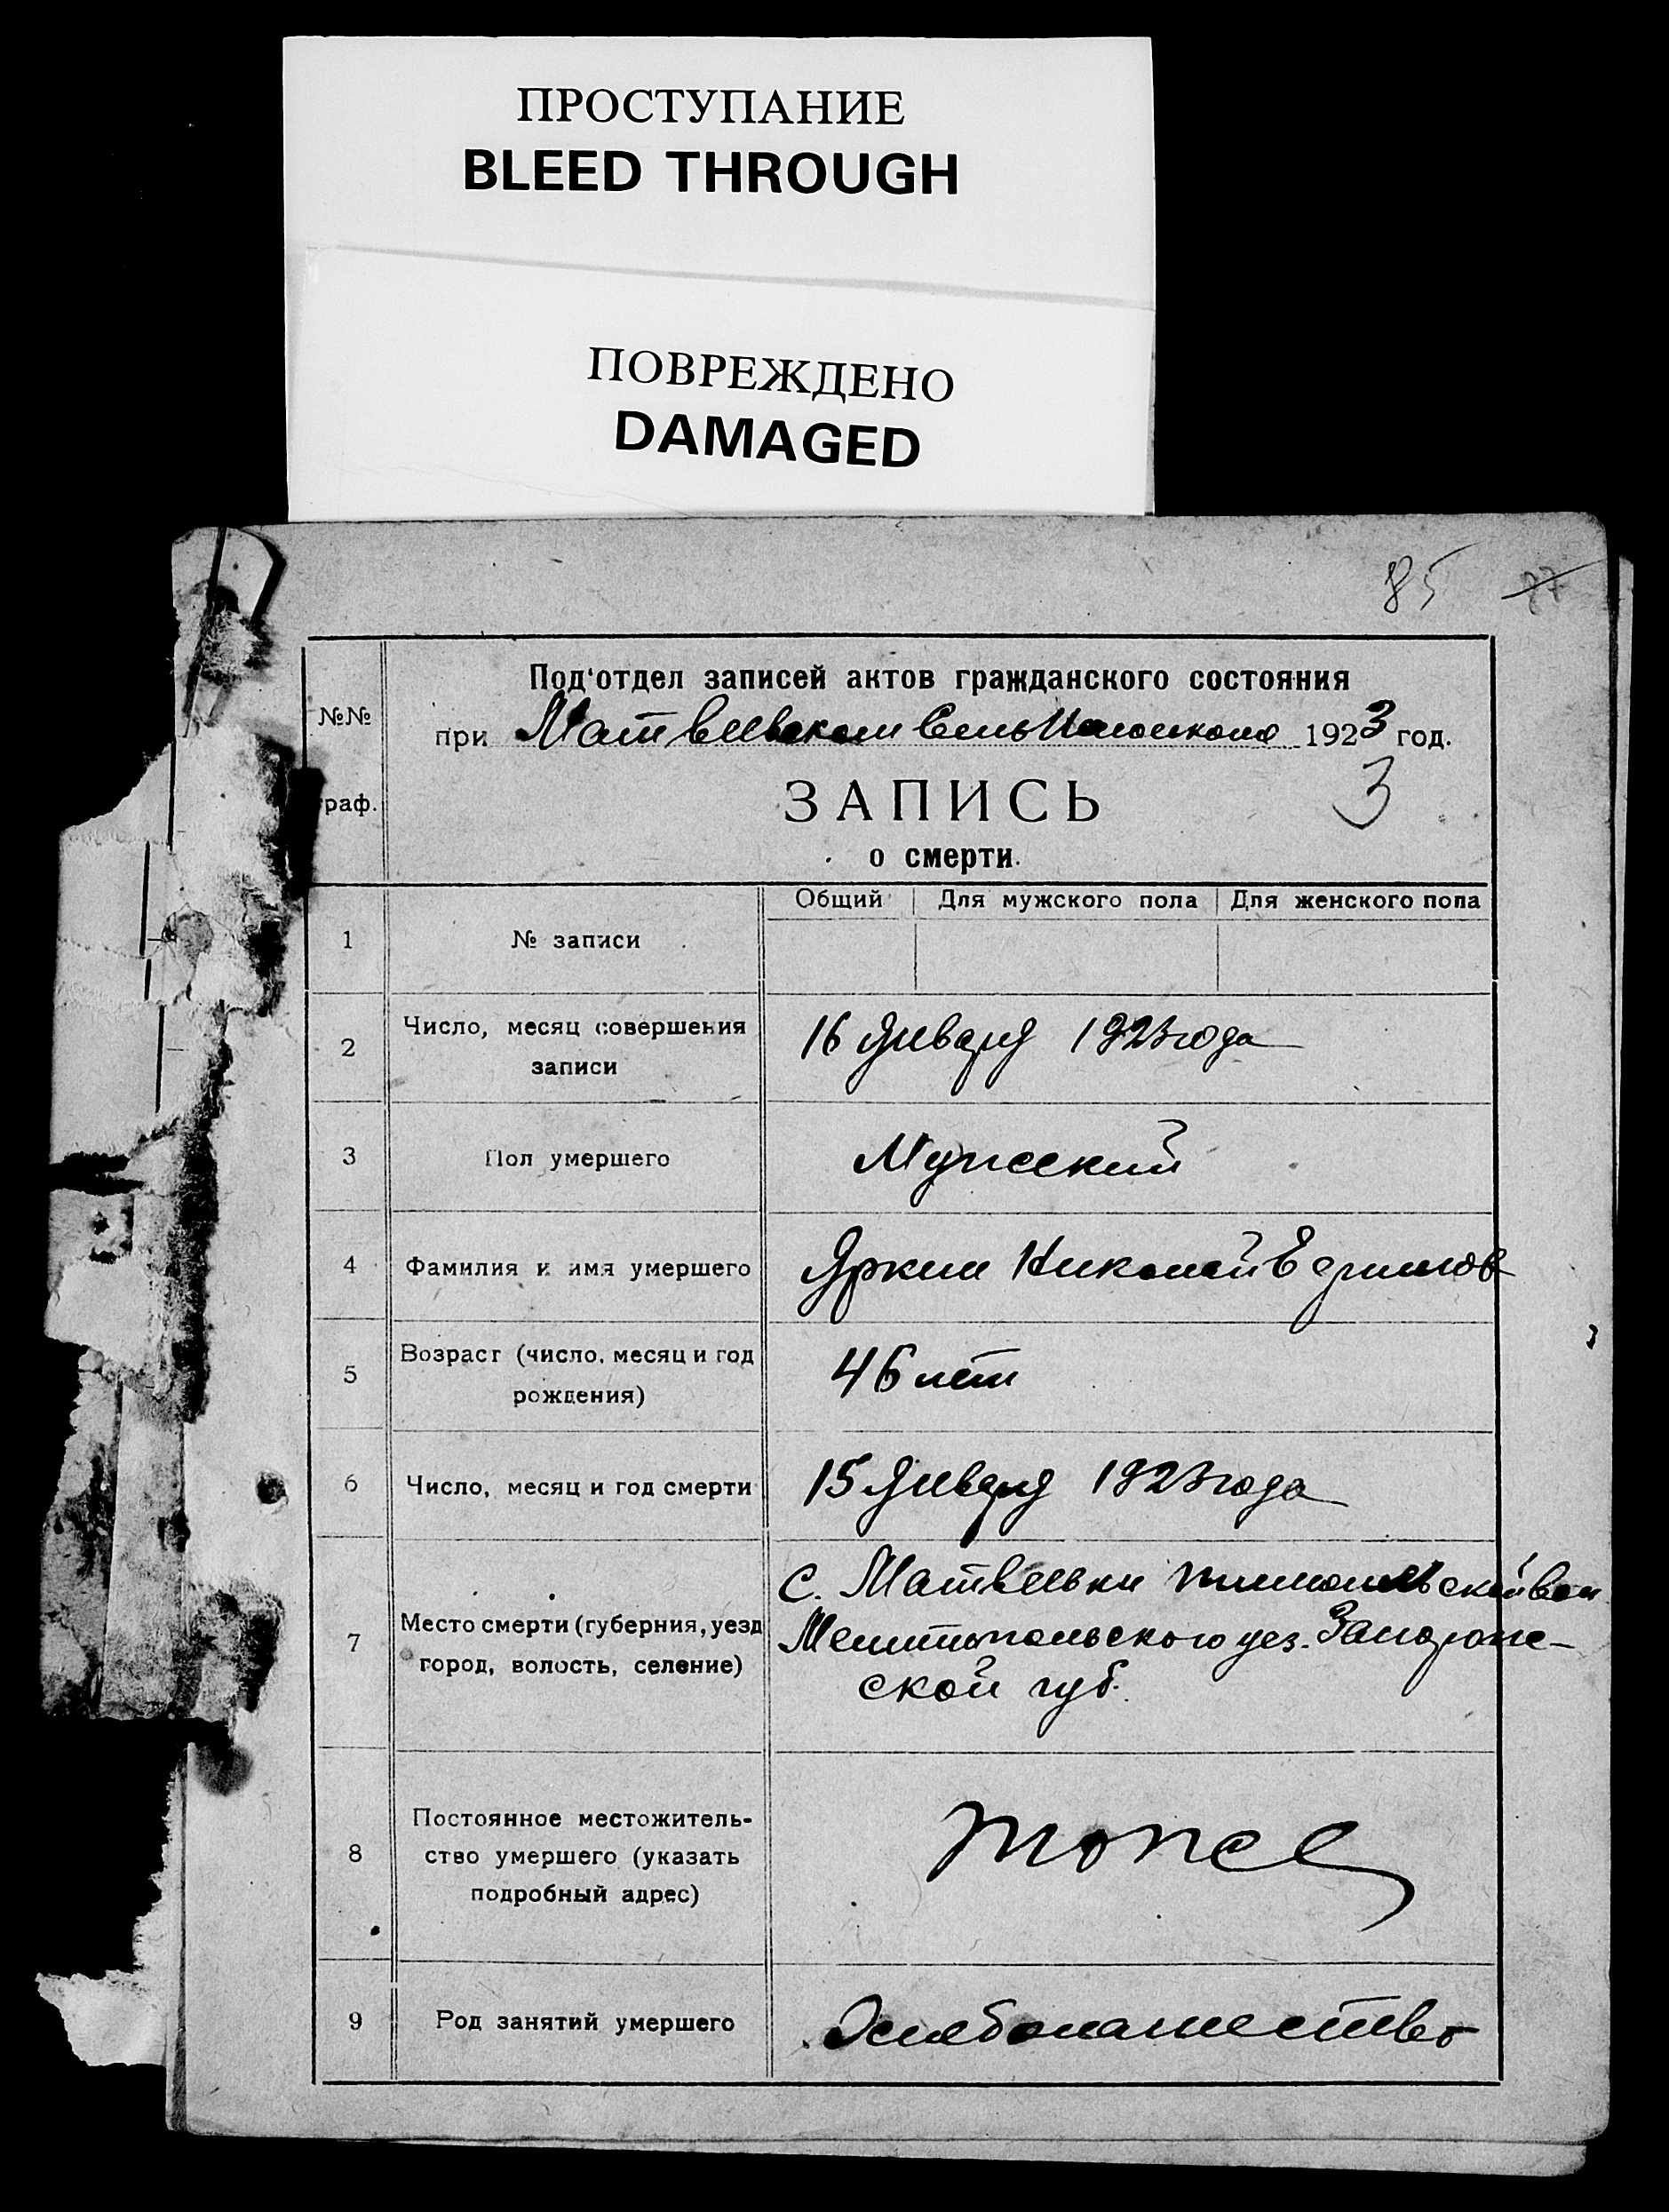 ПРОСТУПАНИЕ
BLEED THROUGH
ПОВРЕЖДЕНО
DAMAGED
85 87
Под'отдел записей актов гражданского состояния
№№
при Матвеевском 1923 год.
раф.
ЗАПИСЬ 3
о смерти.
Общий Для мужского пола Для женского пола
1 № записи
2 Число, месяц совершения
записи
16 Января 1923 года
3 Пол умершего Мужеский
4 Фамилия и имя умершего Яркин Николай
5 Возраст (число, месяц и год
рождения)
46 лет
6 Число, месяц и год смерти 15 Января 1923 года
7 Место смерти (губерния, уезд
город, волость, селение)
с. Матвеевки вол
Мелитопольского уез. Запорож-
ской губ.
8 Постоянное местожитель-
ство умершего (указать
подробный адрес)
тоже
9 Род занятий умершего Хлебопашество